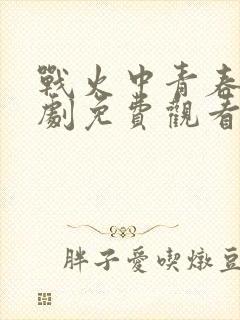 戰火中青春
劇免費觀看
胖子愛喫燉豆